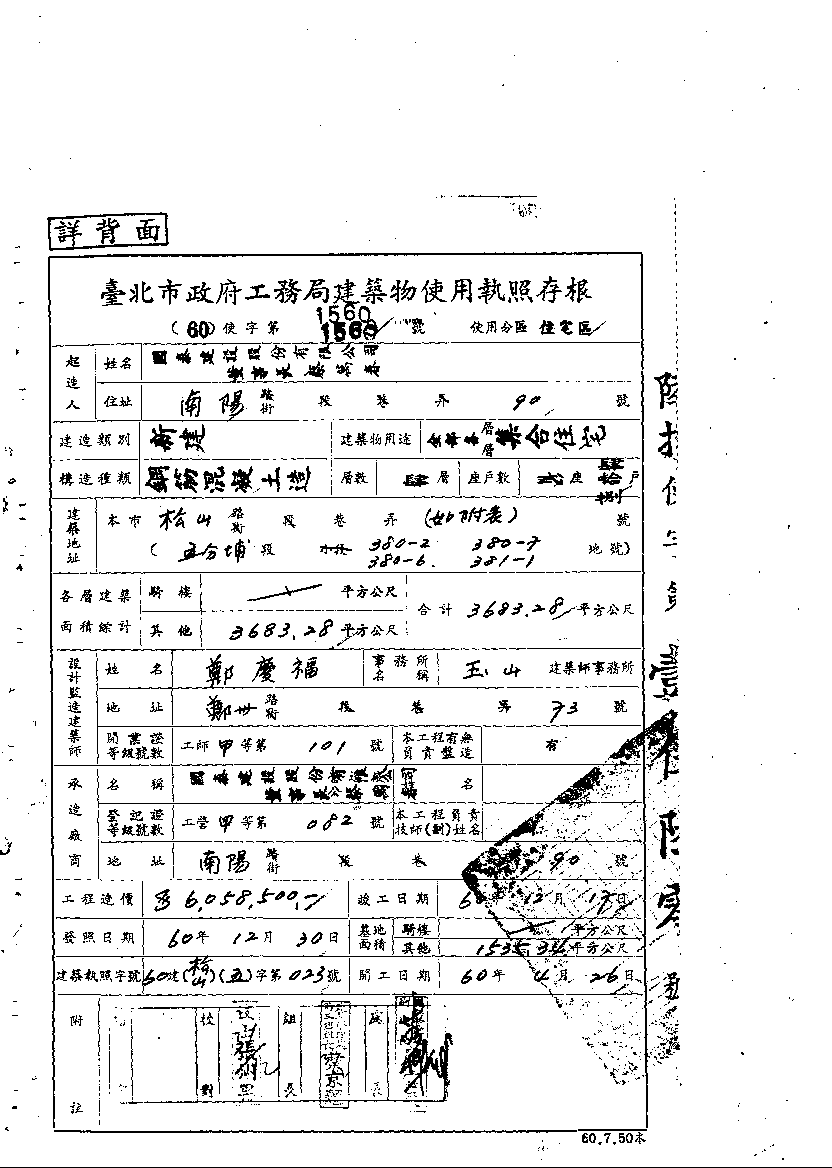 詳背面
臺北市政府工務局建築物使用執照存根
1560
(60)使字第 1560 號 使用分區 住宅區
起造人 姓名 國泰建設股份有限公司
董事長蔡萬春
住址 南陽 路街 段 巷 弄 90 號
建造類別 新建 建築物用途 層層 集合住宅
構造種類 鋼筋混凝土造 層數 肆層 座戶數 座 肆拾捌戶
建築地址 本市 松山 路街 段 巷 弄 (如附表) 號
( 五分埔 段 380-2 380-7 地號)
380-6. 381-1
各層建築面積綜計 騎樓 平方公尺 合計 3683.28 平方公尺
其他 3683.28 平方公尺
設計監造建築師 姓名 鄭慶福 事務所名稱 玉山 建築師事務所
地址 鄭州 路街 段 巷 弄 73 號
開業證等級號數 工師甲等第 101 號 本工程有無負責監造 有
承造廠商 名稱 國泰建設股份有限公司 名
登記證等級號數 工營甲等第 082 號 本工程負責技師(副)姓名
地址 南陽 路街 段 巷 90 號
工程造價 6,058,500,- 竣工日期 60年 12月 17日
發照日期 60年 12月 30日 基地面積 騎樓 平方公尺
其他 1535.34 平方公尺
建築執照字號 60建(松山)(五)字第023號 開工日期 60年 4月 26日
附註 校對 組長 長
60.7.50本